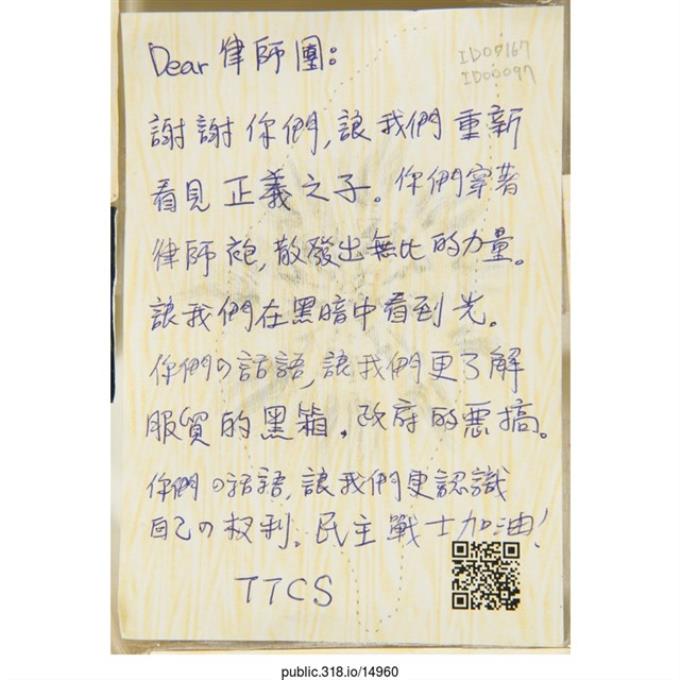 Dear 律師團:
ID00167
ID00097
謝謝你們,讓我們重新
看見正義之子。你們穿著
律師袍,散發出無比的力量。
讓我們在黑暗中看到光。
你們の話語,讓我們更了解
服貿的黑箱,政府的惡搞。
你們の話語,讓我們更認識
自己の权利。民主戰士加油!
TTCS
public.318.io/14960